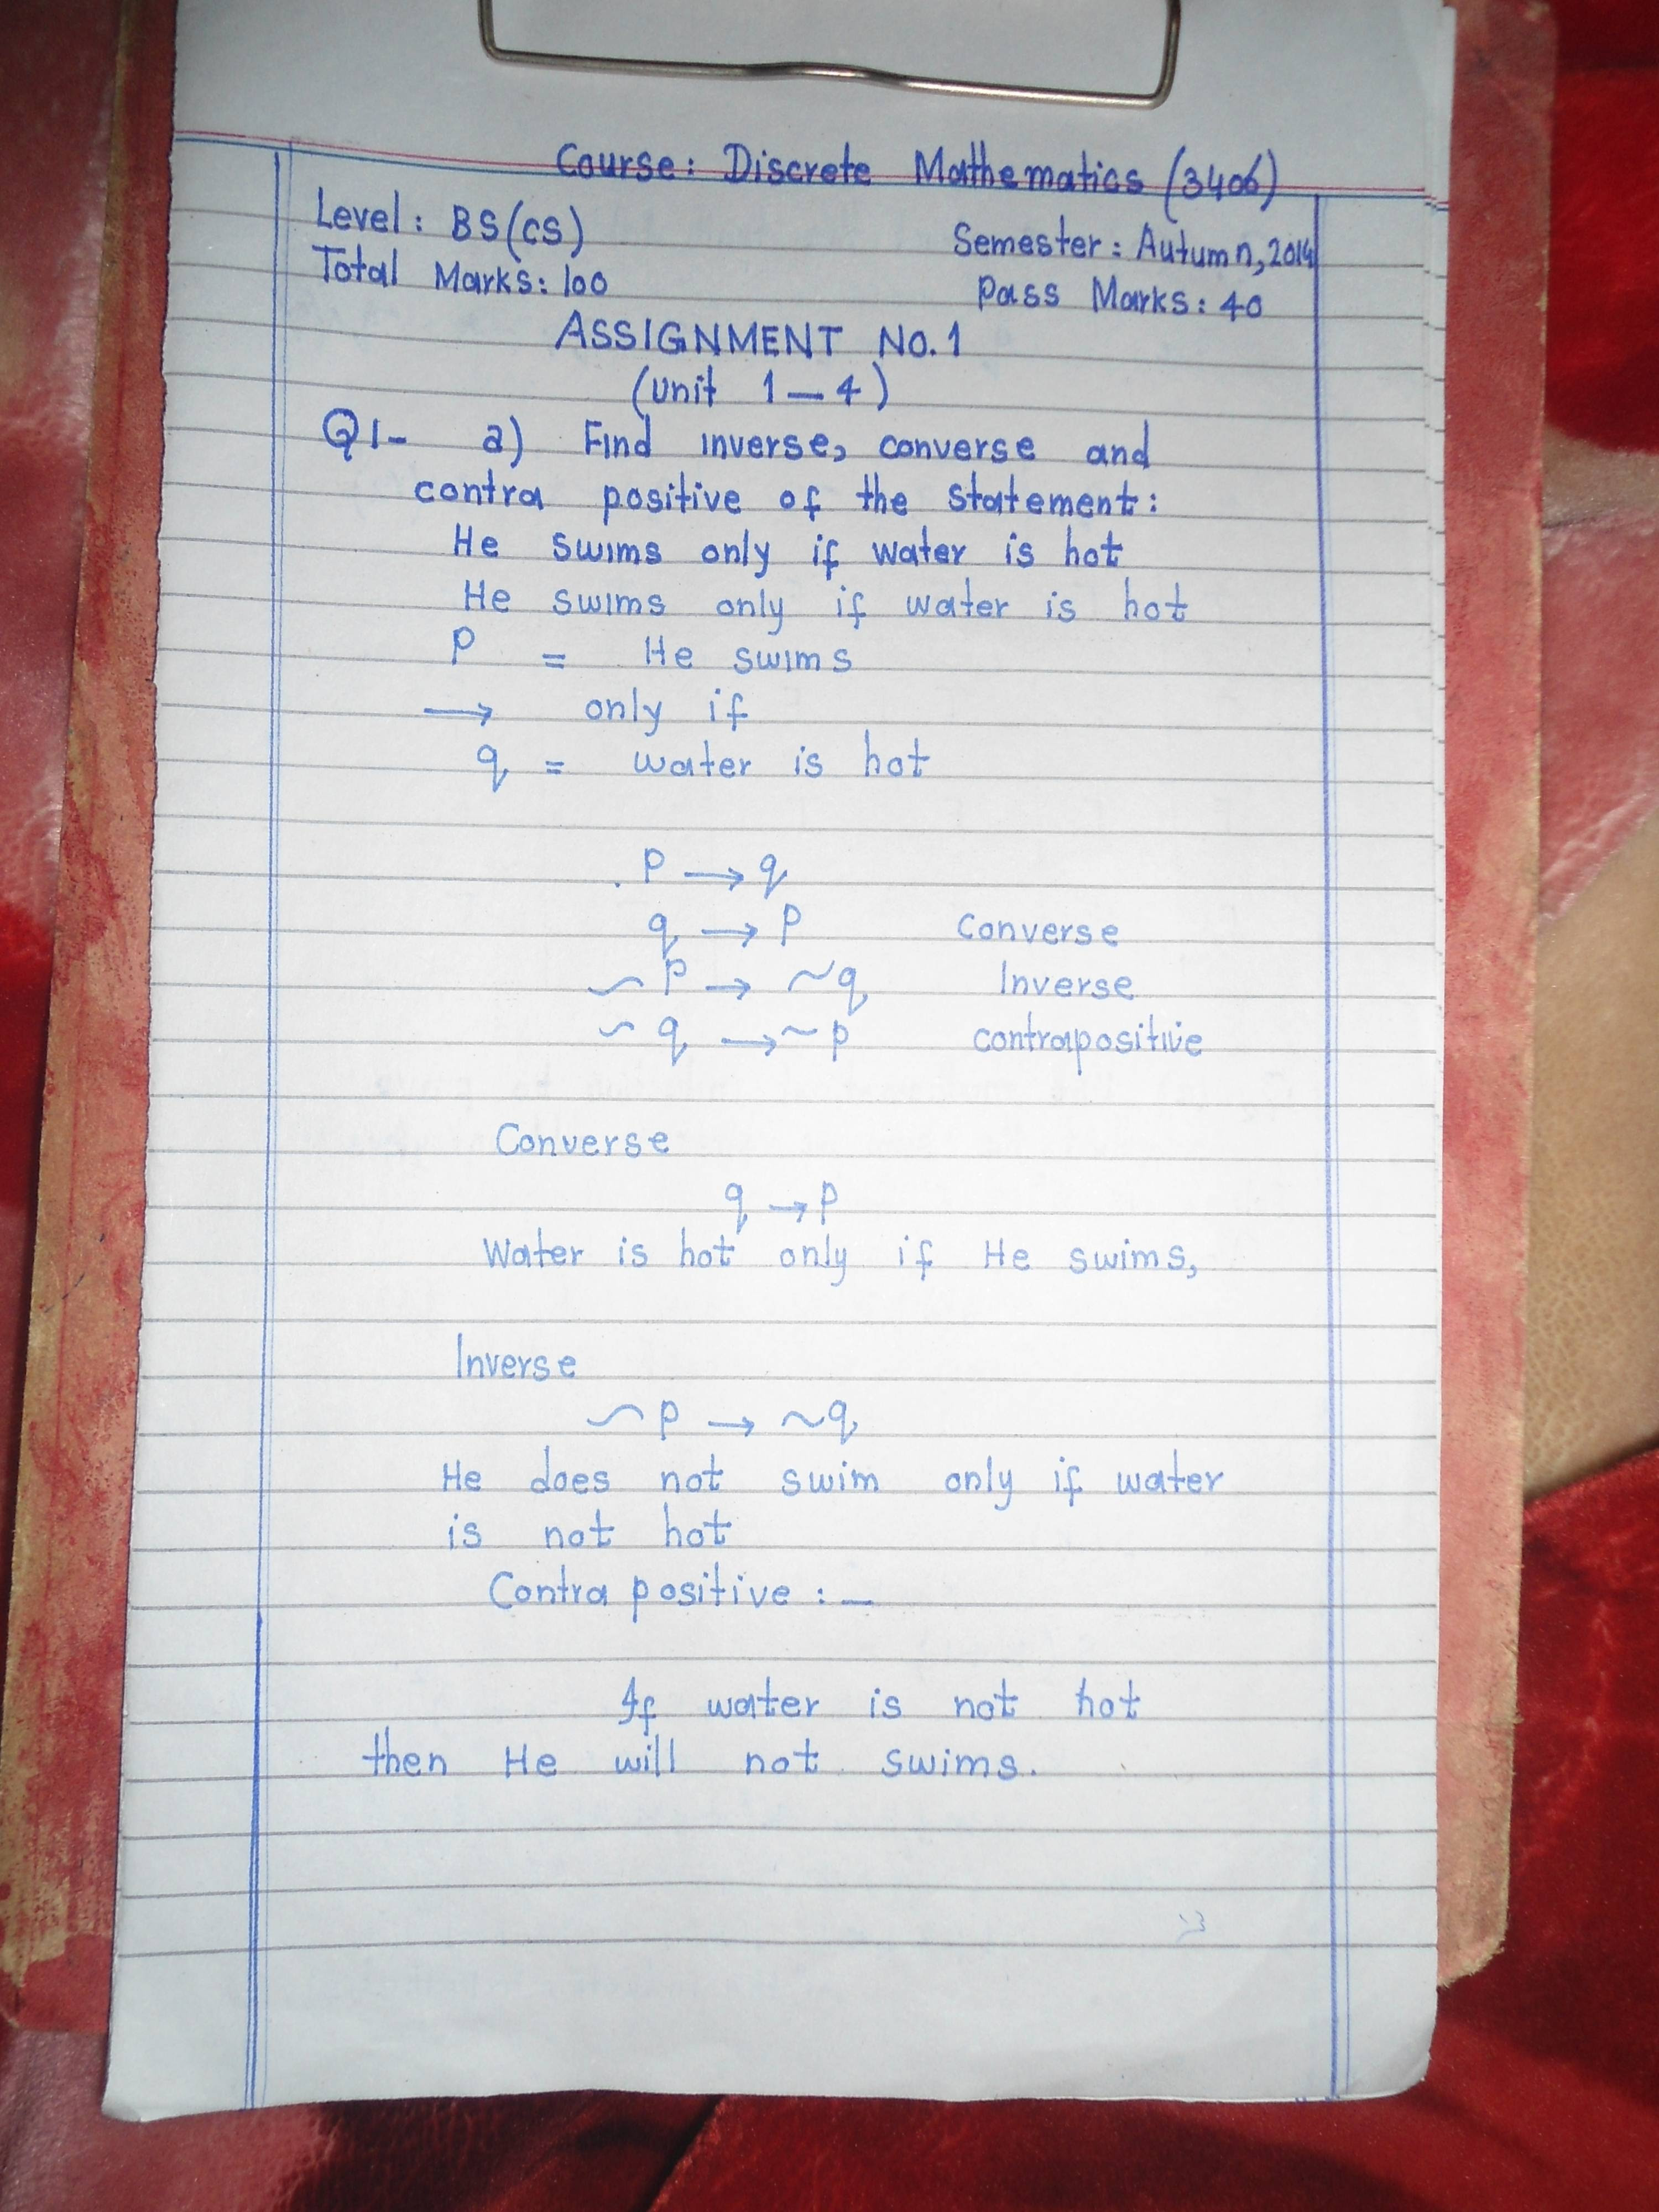 Course: Discrete Mathematics (3406)
Level: BS(CS)
Semester: Autumn, 2014
Total Marks: 100
Pass Marks: 40
ASSIGNMENT NO.1
(Unit 1-4)
Q1- a) Find inverse, converse and
contra positive of the statement:
He swims only if water is hot
He swims only if water is hot
P = He swims
→ only if
q = water is hot
P → q
q → P Converse
~P → ~q Inverse
~q → ~p contrapositive
Converse
q → P
Water is hot only if He swims,
Inverse
~P → ~q
He does not swim only if water
is not hot
Contra positive :-
If water is not hot
then He will not swims.